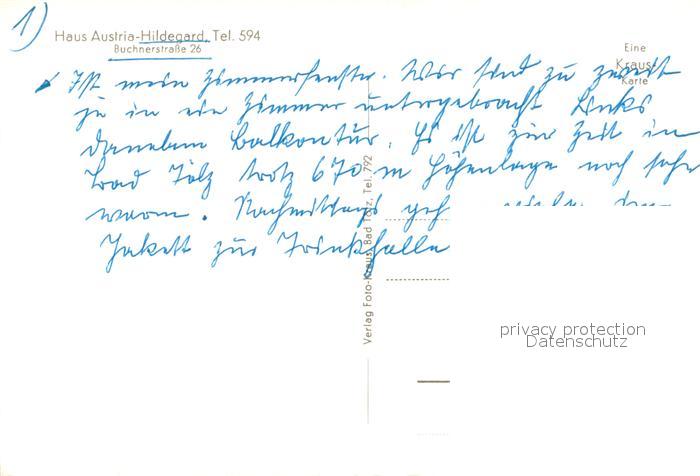 1)
Haus Austria-Hildegard, Tel. 594
Buchnerstraße 26
Eine
Kraus
Karte
Ist mein Zimmerfenster. Wir sind zu zweit
je in ein Zimmer untergebracht Links
daneben Balkontür. Es ist zur Zeit in
Bad Tölz trotz 670 m Höhenlage noch sehr
warm. Nachmittags geh
Jakett zur Trinkhalle
Verlag Foto-Kraus, Bad Tölz, Tel. 792
privacy protection
Datenschutz